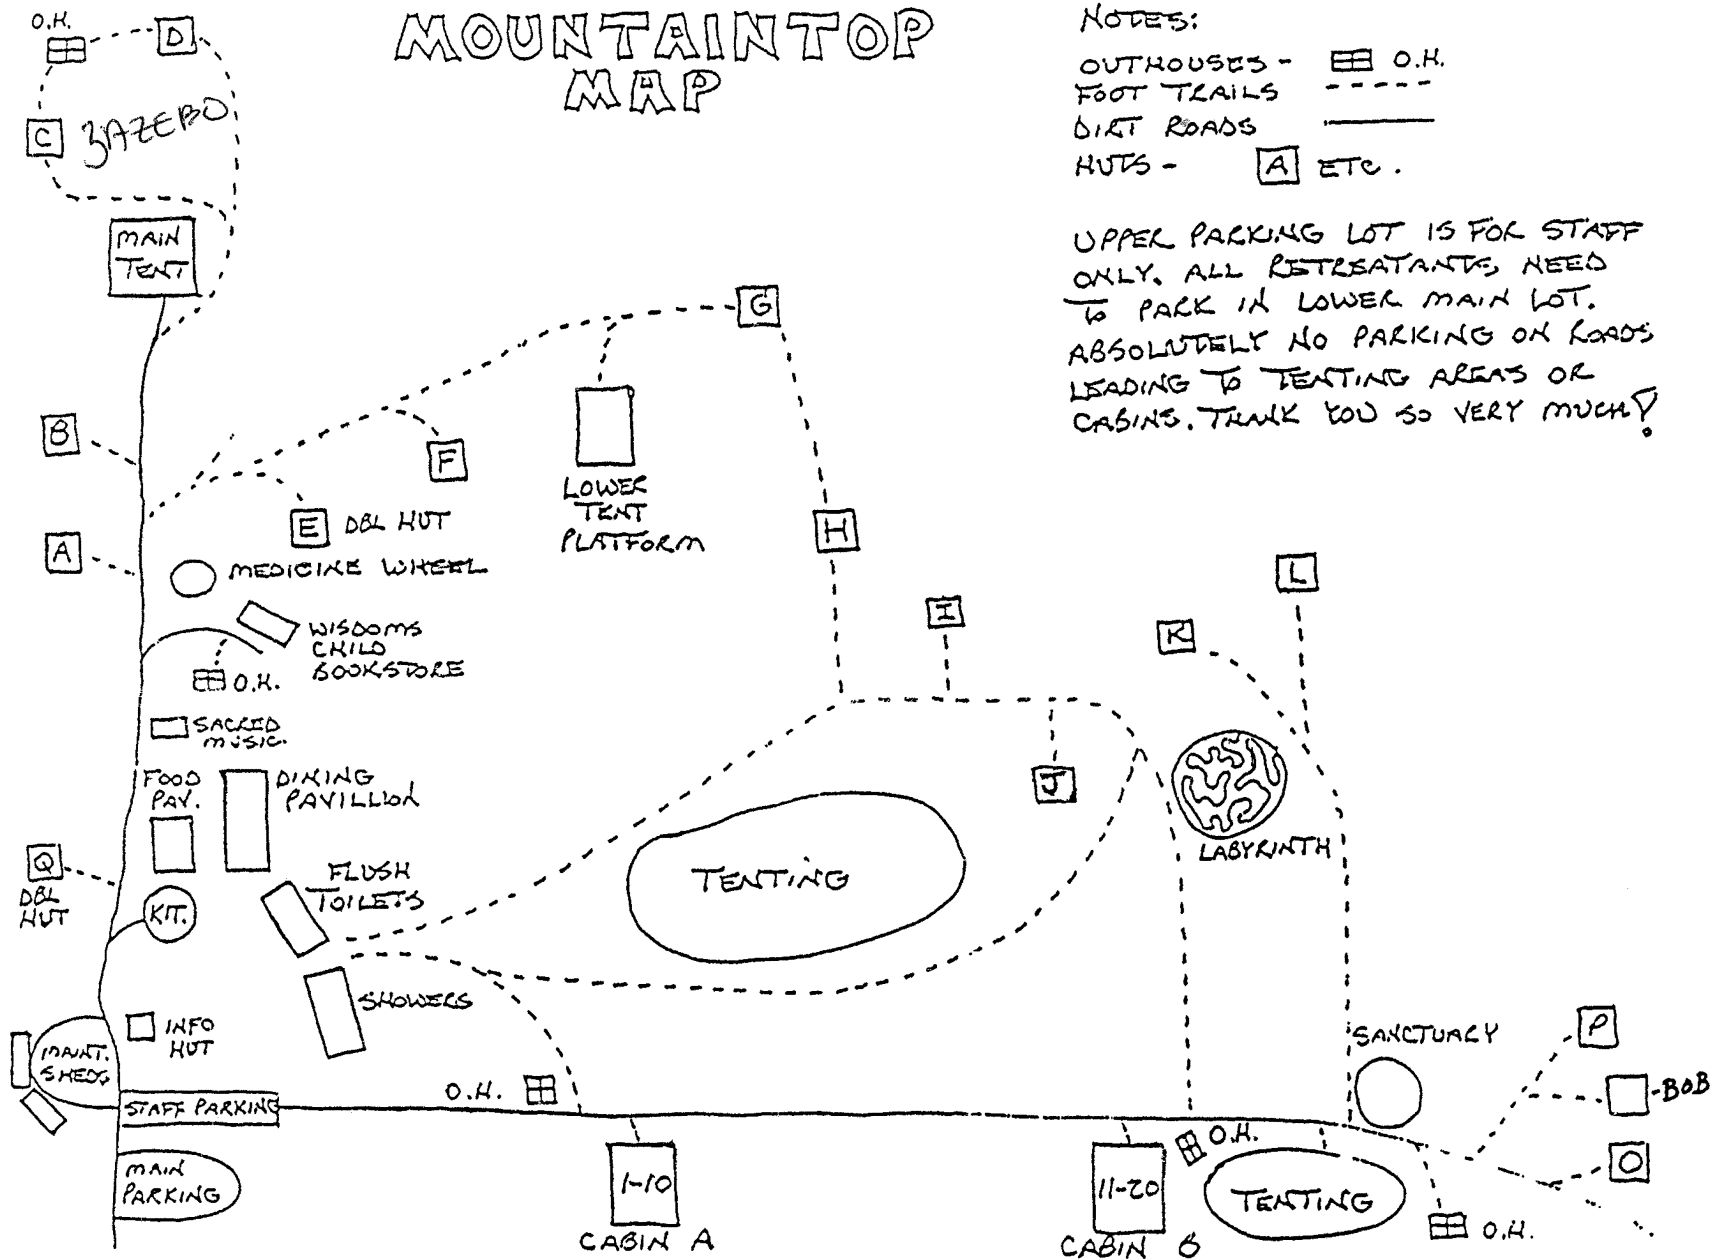 MOUNTAINTOP
MAP
NOTES:
OUTHOUSES - O.H.
FOOT TRAILS
DIRT ROADS
HUTS - A ETC.
UPPER PARKING LOT IS FOR STAFF
ONLY. ALL RETREATANTS, NEED
TO PARK IN LOWER MAIN LOT.
ABSOLUTELY NO PARKING ON ROADS
LEADING TO TENTING AREAS OR
CABINS. THANK YOU SO VERY MUCH!
O.H.
D
C
GAZEBO
MAIN
TENT
G
B
F
LOWER
TENT
PLATFORM
E DBL HUT
H
A
MEDICINE WHEEL
L
I
K
WISDOMS
CHILD
BOOKSTORE
O.H.
SACRED
MUSIC.
FOOD
PAV.
DINING
PAVILLION
J
LABYRINTH
TENTING
Q
DBL
HUT
KIT.
FLUSH
TOILETS
SHOWERS
INFO
HUT
MAINT.
SHEDS
SANCTUARY
P
-BOB
O.H.
STAFF PARKING
MAIN
PARKING
1-10
CABIN A
11-20
CABIN B
O.H.
TENTING
O
O.H.